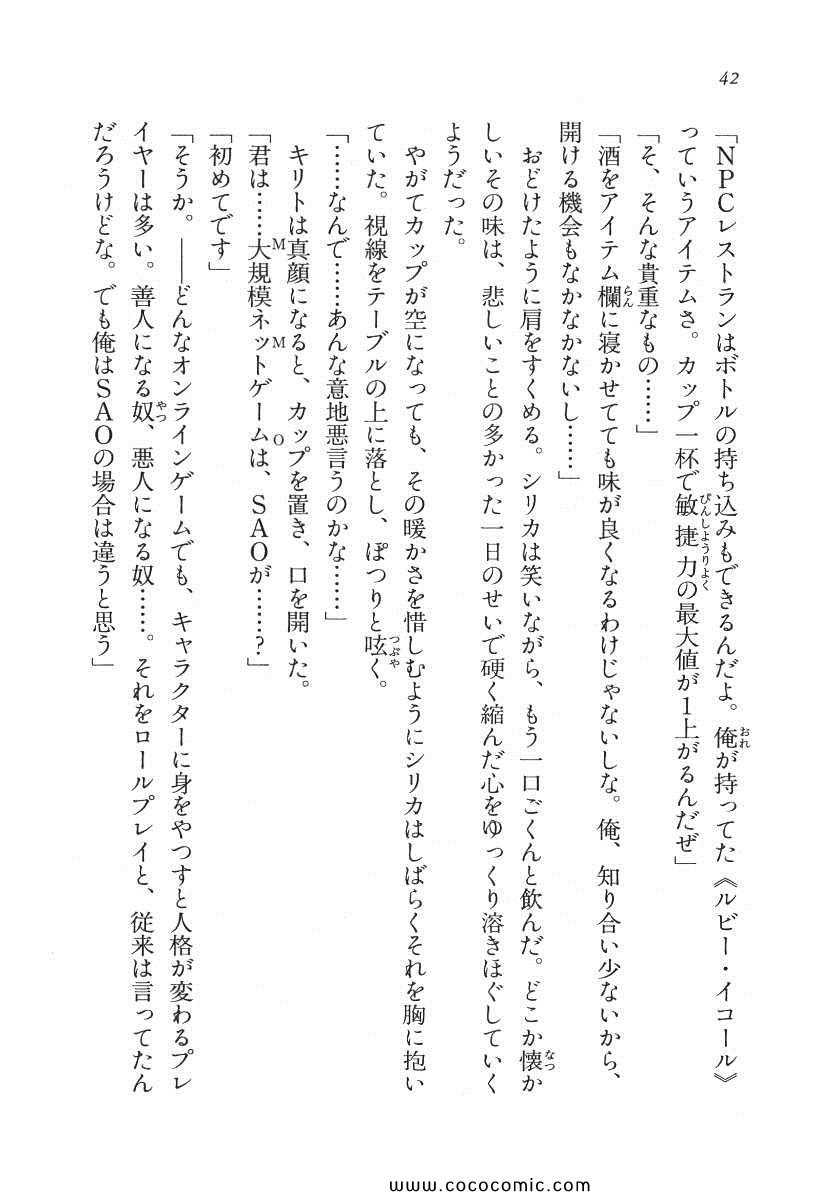 42
「NPCレストランはボトルの持ち込みもできるんだよ。俺が持ってた《ルビー・イコール》
っていうアイテムさ。カップ一杯で敏捷力の最大値が1上がるんだぜ」
「そ、そんな貴重なもの……」
「酒をアイテム欄に寝かせてても味が良くなるわけじゃないしな。俺、知り合い少ないから、
開ける機会もなかなかないし……」
　おどけたように肩をすくめる。シリカは笑いながら、もう一口ごくんと飲んだ。どこか懐か
しいその味は、悲しいことの多かった一日のせいで硬く縮んだ心をゆっくり溶きほぐしていく
ようだった。
　やがてカップが空になっても、その暖かさを惜しむようにシリカはしばらくそれを胸に抱い
ていた。視線をテーブルの上に落とし、ぽつりと呟く。
「……なんで……あんな意地悪言うのかな……」
　キリトは真顔になると、カップを置き、口を開いた。
「君は……大規模ネットゲームは、SAOが……?」
「初めてです」
「そうか。――どんなオンラインゲームでも、キャラクターに身をやつすと人格が変わるプレ
イヤーは多い。善人になる奴、悪人になる奴……。それをロールプレイと、従来は言ってたん
だろうけどな。でも俺はSAOの場合は違うと思う」
www.cococomic.com